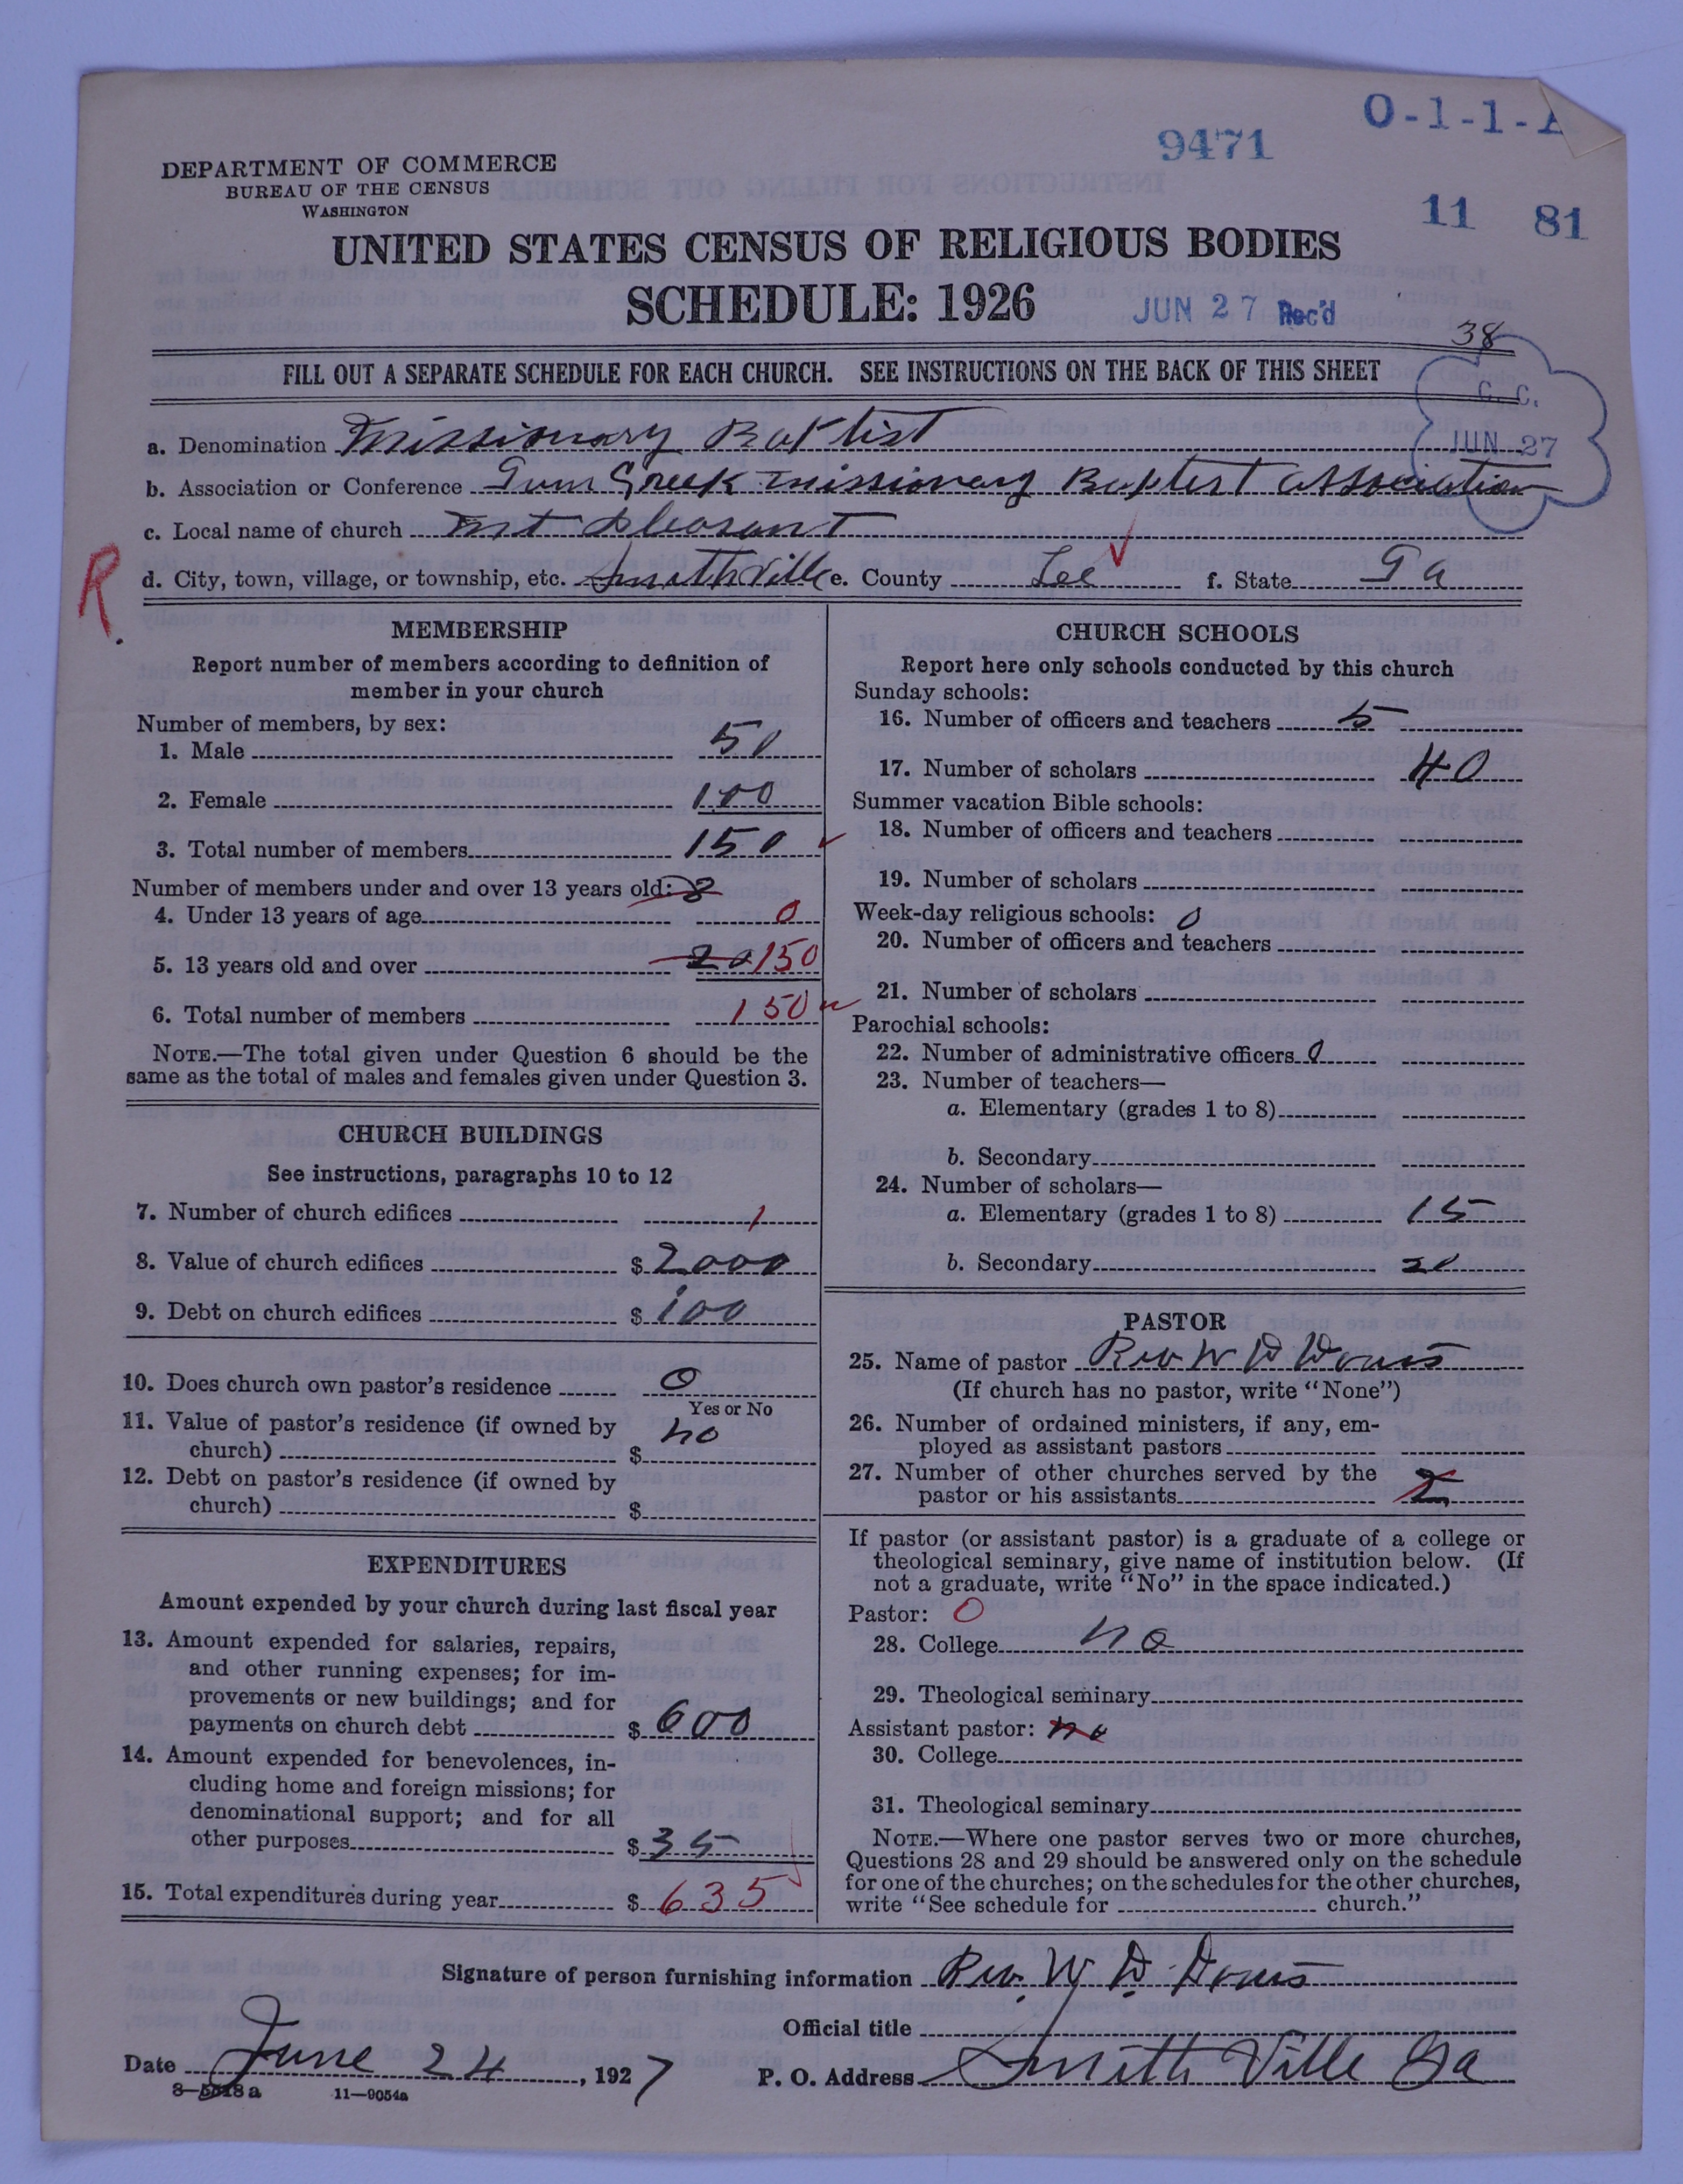 O-1-1-A
9471
11 81
DEPARTMENT OF COMMERCE
BUREAU OF THE CENSUS
WASHINGTON
UNITED STATES CENSUS OF RELIGIOUS BODIES
SCHEDULE: 1926
JUN 27 Rec'd
38
FILL OUT A SEPARATE SCHEDULE FOR EACH CHURCH. SEE INSTRUCTIONS ON THE BACK OF THIS SHEET
C. C.
JUN 27
a. Denomination Missionary Baptist
b. Association or Conference Gum Creek Missionary Baptist Association
c. Local name of church Mt Pleasant
R.
d. City, town, village, or township, etc. Smithville e. County Lee f. State Ga
MEMBERSHIP
Report number of members according to definition of
member in your church
Number of members, by sex:
1. Male 50
2. Female 100
3. Total number of members 150
Number of members under and over 13 years old: 8
4. Under 13 years of age 0
5. 13 years old and over 20 150
6. Total number of members 150
NOTE.—The total given under Question 6 should be the
same as the total of males and females given under Question 3.
CHURCH BUILDINGS
See instructions, paragraphs 10 to 12
7. Number of church edifices 1
8. Value of church edifices $ 2000
9. Debt on church edifices $ 100
10. Does church own pastor's residence 0
Yes or No
11. Value of pastor's residence (if owned by
church) $ no
12. Debt on pastor's residence (if owned by
church) $
EXPENDITURES
Amount expended by your church during last fiscal year
13. Amount expended for salaries, repairs,
and other running expenses; for im-
provements or new buildings; and for
payments on church debt $ 600
14. Amount expended for benevolences, in-
cluding home and foreign missions; for
denominational support; and for all
other purposes $ 35
15. Total expenditures during year $ 635
CHURCH SCHOOLS
Report here only schools conducted by this church
Sunday schools:
16. Number of officers and teachers 5
17. Number of scholars 40
Summer vacation Bible schools:
18. Number of officers and teachers
19. Number of scholars
Week-day religious schools: 0
20. Number of officers and teachers
21. Number of scholars
Parochial schools:
22. Number of administrative officers 0
23. Number of teachers—
a. Elementary (grades 1 to 8)
b. Secondary
24. Number of scholars—
a. Elementary (grades 1 to 8) 15
b. Secondary 20
PASTOR
25. Name of pastor Rev W D
(If church has no pastor, write "None")
26. Number of ordained ministers, if any, em-
ployed as assistant pastors
27. Number of other churches served by the
pastor or his assistants 2
If pastor (or assistant pastor) is a graduate of a college or
theological seminary, give name of institution below. (If
not a graduate, write "No" in the space indicated.)
Pastor: 0
28. College no
29. Theological seminary
Assistant pastor: no
30. College
31. Theological seminary
NOTE.—Where one pastor serves two or more churches,
Questions 28 and 29 should be answered only on the schedule
for one of the churches; on the schedules for the other churches,
write "See schedule for church."
Signature of person furnishing information Rev. W. D.
Official title
Date June 24, 1927 P. O. Address Smithville Ga
11—9054a